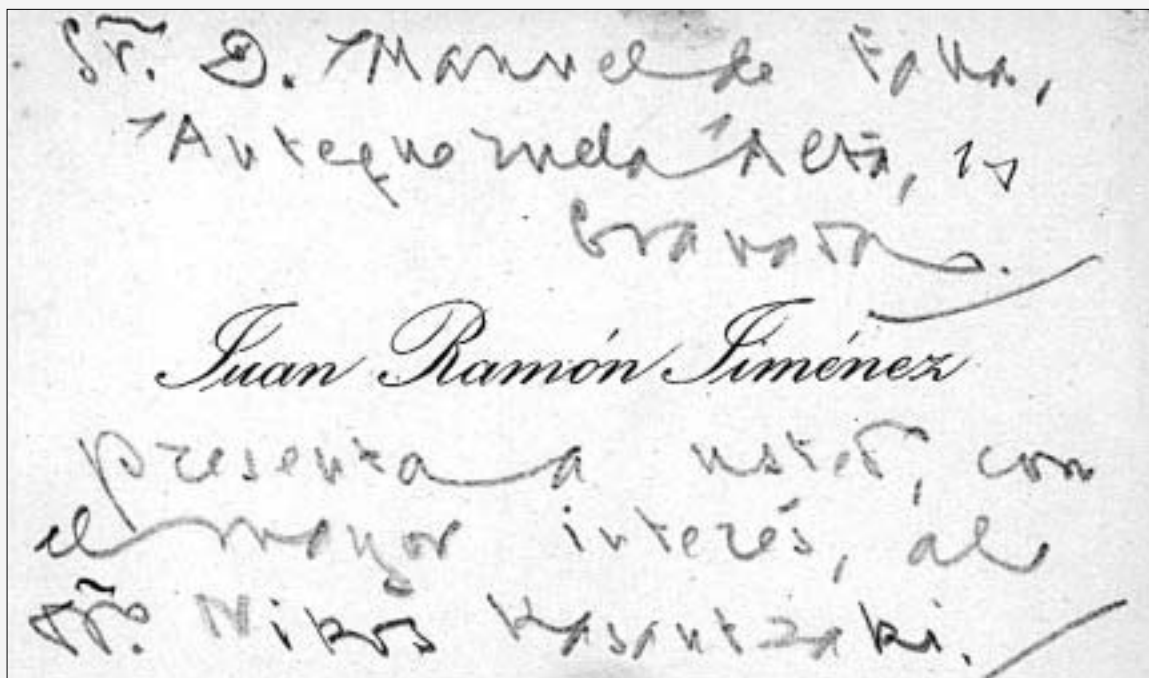 Sr. D. Manuel de Falla,
Antequeruela Alta,
Granada.
Juan Ramón Jiménez
presenta a usted, con
el mayor interés, al
Nikos Kasantzaki.